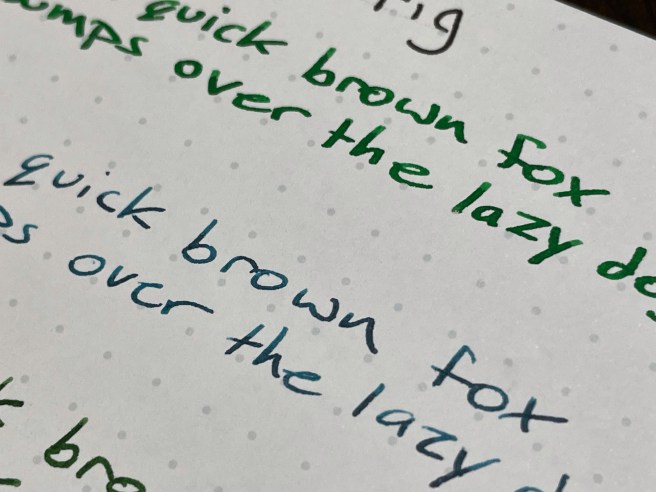 quick brown fox
jumps over the lazy
quick brown fox
over the lazy